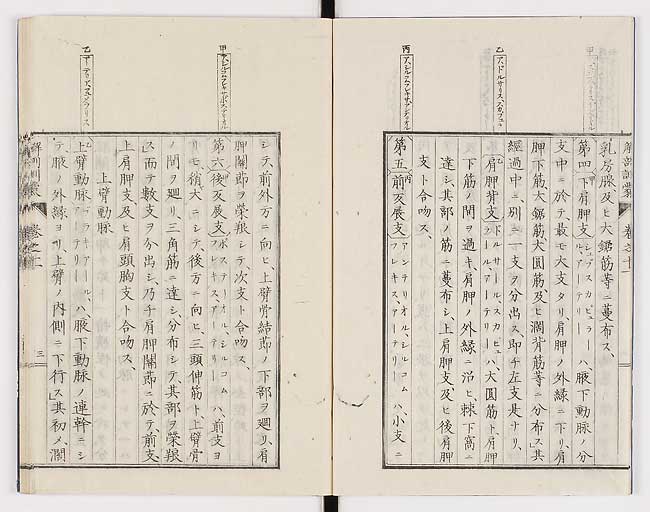 乳房腺及ヒ大鋸筋等ニ蔓布ス、
第四下肩胛支シュブスカピュラール、アーテリー ハ、腋下動脉ノ分
支中ニ於テ、最モ大支タリ、肩胛ノ外縁ニ下リ、肩
胛下筋、大鋸筋、大圓筋、及ヒ濶背筋等ニ分布ス」其
經過中ニ、別ニ一支ヲ分出ス、即チ左支是ナリ、
肩胛背支ドルサール、スカピュラール、アーテリー ハ、大圓筋ト、肩胛
下筋ノ間ヲ過キ、肩胛ノ外縁ニ沿ヒ、棘下窩ニ
達シ、其部ノ筋ニ蔓布シ、上肩胛支、及ヒ後肩胛
支ト合吻ス、
第五前反展支アンテリオル、シルコムフレキス、アーテリー ハ、小支ニ
シテ、前外方ニ向ヒ、上臂骨結節ノ下部ヲ廻リ、肩
胛關節ヲ榮養シ、次支ト合吻ス、
第六後反展支ポステーリオル、シルコムフレキス、アーテリー ハ、前支ヨ
リモ、稍大ニシテ、後方ニ向ヒ、三頭伸筋ト、上臂骨
ノ間ヲ廻リ、三角筋ニ達シ、分布シテ、其部ヲ榮養
ス、而テ數支ヲ分出シ、乃チ肩胛關節ニ於テ、前支、
上肩胛支、及ヒ肩頭胸支ト合吻ス、
上臂動脉
上臂動脉ブラキアール、アーテリー ハ、腋下動脉ノ連幹ニシ
テ、腋ノ外縁ヨリ、上臂ノ内側ニ下行ス」其初メ、濶